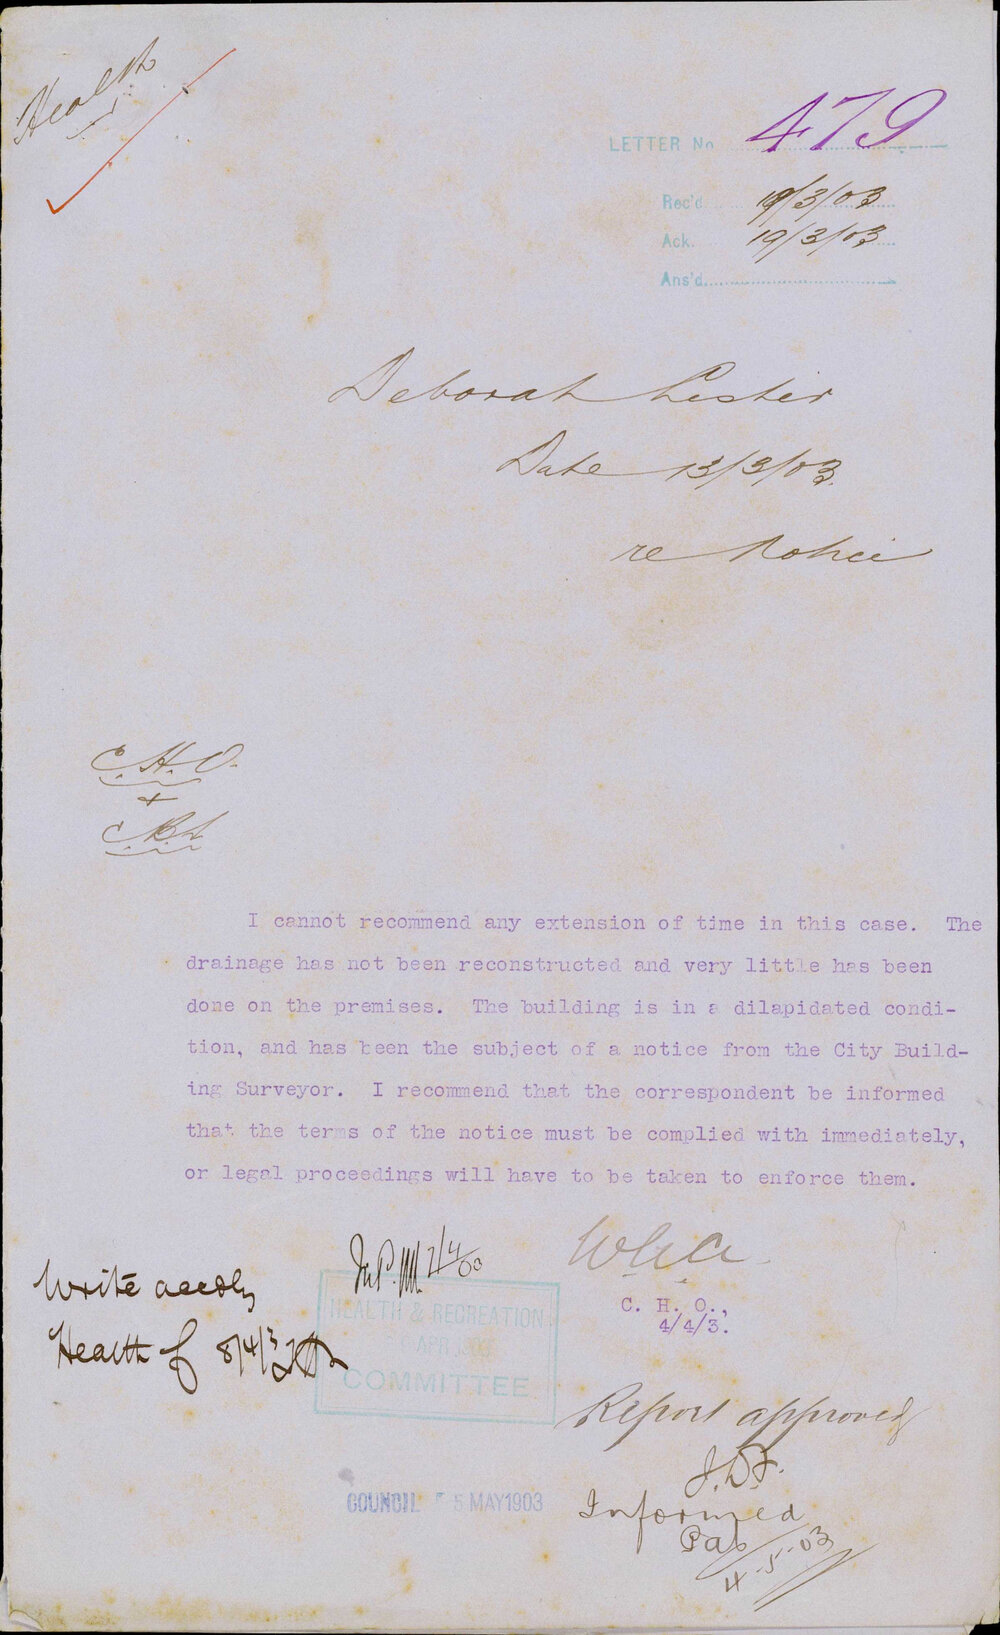 Health
LETTER No 479
Rec'd 19/3/03
Ack. 19/3/03
Ans'd
Deborah Lester
Date 13/3/03.
re Notice
C.H.O.
+
C.B.S.
I cannot recommend any extension of time in this case. The
drainage has not been reconstructed and very little has been
done on the premises. The building is in a dilapidated condi-
tion, and has been the subject of a notice from the City Build-
ing Surveyor. I recommend that the correspondent be informed
that the terms of the notice must be complied with immediately,
or legal proceedings will have to be taken to enforce them.
C. H. O.,
4/4/3.
Write accdly
Health 8/4/3
HEALTH & RECREATION
APR
COMMITTEE
Report approved
COUNCIL 5 MAY 1903
Informed
4-5-03